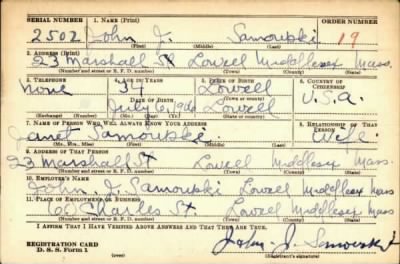 SERIAL NUMBER 1. NAME (Print) ORDER NUMBER
2502 John J. Samowski 19
(First) (Middle) (Last)
2. ADDRESS (Print)
23 Marshall St Lowell Middlesex Mass.
(Number and street or R. F. D. number) (Town) (County) (State)
3. TELEPHONE 4. AGE IN YEARS 5. PLACE OF BIRTH 6. COUNTRY OF CITIZENSHIP
None 34 Lowell
DATE OF BIRTH (Town or county)
July Lowell U.S.A.
(Exchange) (No.) (Mo.) (Day) (Yr.) (State or country)
7. NAME OF PERSON WHO WILL ALWAYS KNOW YOUR ADDRESS 8. RELATIONSHIP OF THAT PERSON
Janet Samowski Wife
(Mr., Mrs., Miss) (First) (Middle) (Last)
9. ADDRESS OF THAT PERSON
23 Marshall St Lowell Middlesex Mass.
(Number and street or R. F. D. number) (Town) (County) (State)
10. EMPLOYER'S NAME
John. J. Samowski Lowell Middlesex Mass
11. PLACE OF EMPLOYMENT OR BUSINESS
60 Charles St. Lowell Middlesex Mass
(Number and street or R. F. D. number) (Town) (County) (State)
I AFFIRM THAT I HAVE VERIFIED ABOVE ANSWERS AND THAT THEY ARE TRUE.
REGISTRATION CARD
D. S. S. Form 1 John J. Samowski
(over) (Registrant's signature)